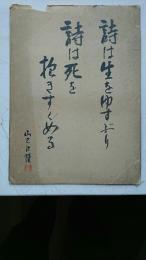 詩は生をゆすぶり
詩は死を
抱きすくめる